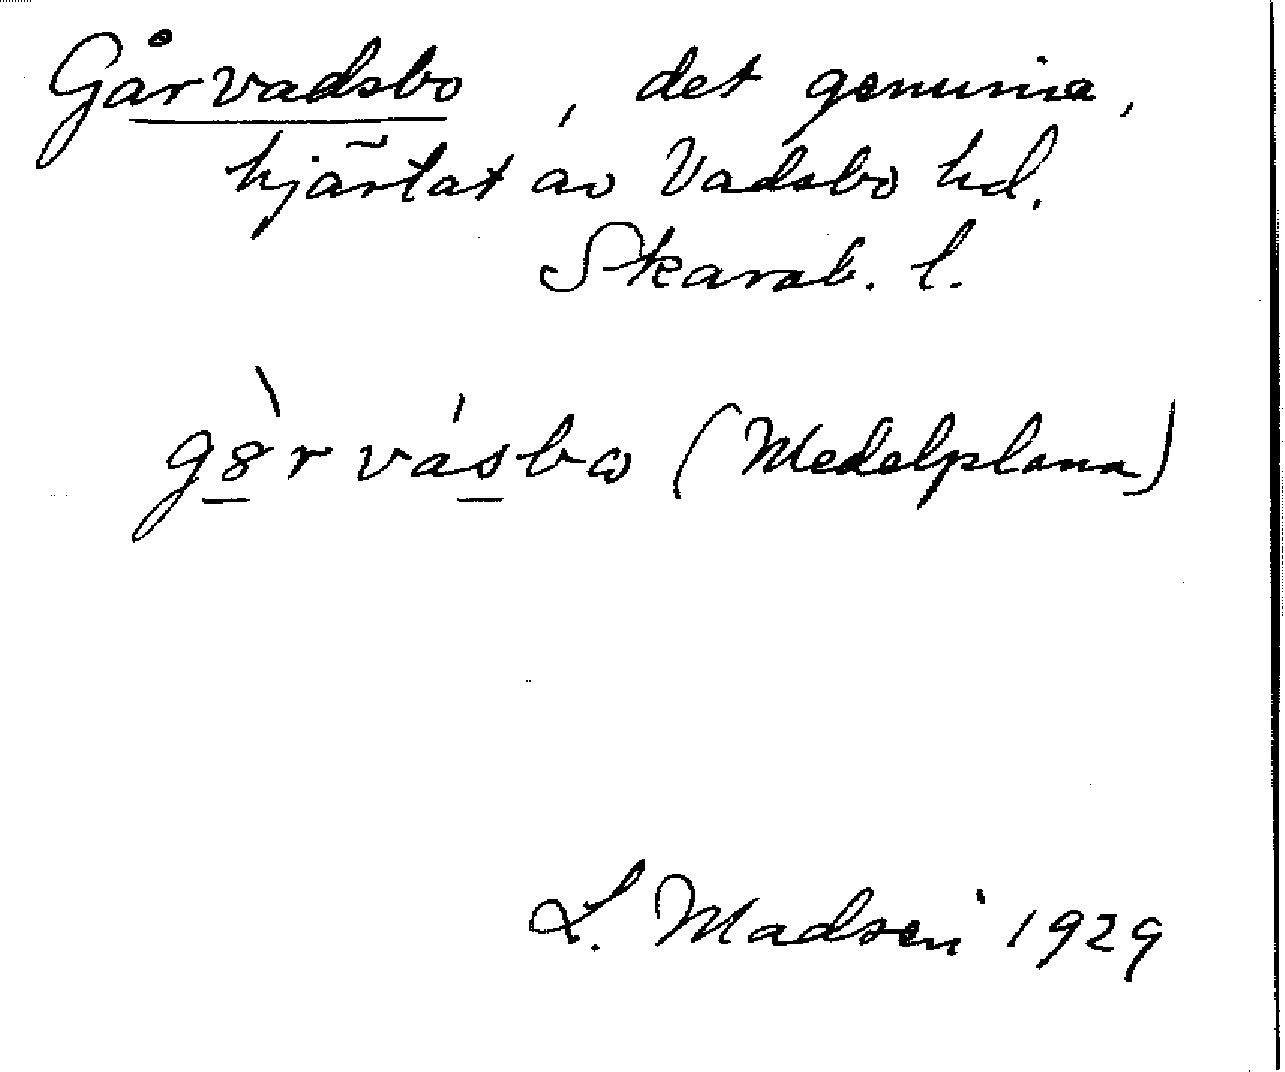 Gårvadsbo , det genuina,
hjärtat av Vadsbo hd.
Skarab. l.
gs̱̀r vás̱bω (Medelplana)
L. Madsén 1929